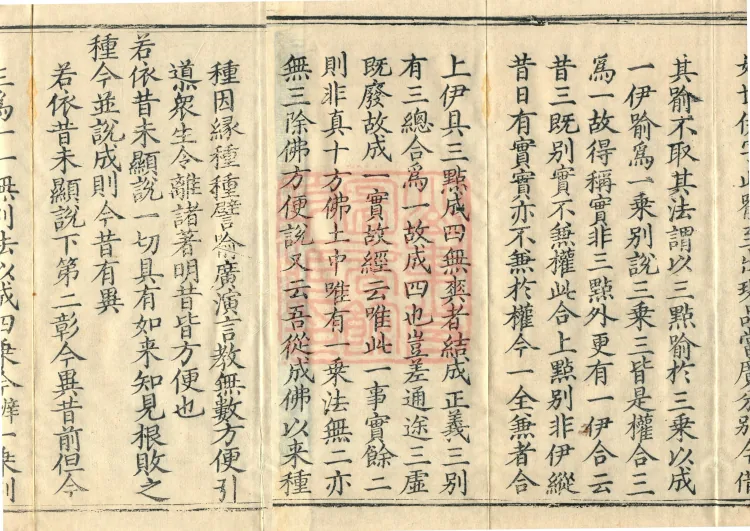 其喻不取其法謂以三點喻於三乘以成
一伊喻爲一乘別說三乘三皆是權合三
爲一故得稱實非三點外更有一伊合云
昔三既別實不兼權此合上點別非伊縱
昔日有實實亦不兼於權今一全兼者合
上伊具三點成四無爽者結成正義三別
有三總合爲一故成四也豈差通途三虛
既廢故成一實故經云唯此一事實餘二
則非真十方佛土中唯有一乘法無二亦
無三除佛方便說又云吾從成佛以来種
種因緣種種譬喻廣演言教無數方便引
導衆生令離諸著明昔皆方便也
若依昔未顯說一切具有如来知見根敗之
種今並說成則今昔有異
若依昔未顯說下第二彰今異昔前但今
三爲一一無別法以成四乘今 一乘別